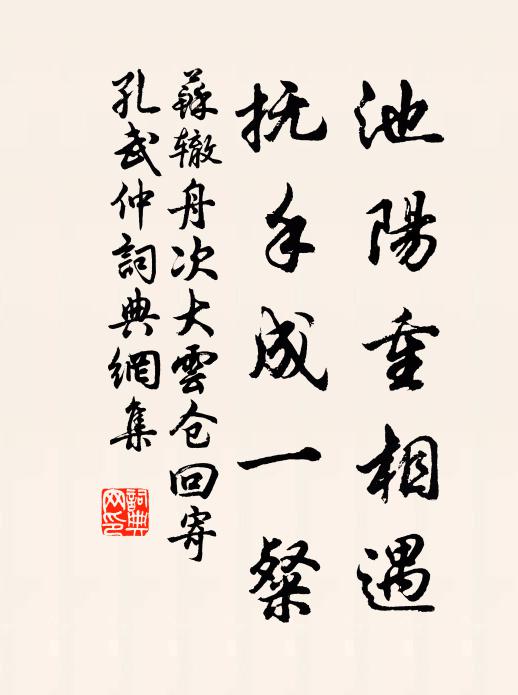 池陽重相遇
抚手成一粲
蘇辙舟次大雲仓回寄
孔武仲詞典網集
詞典
网印